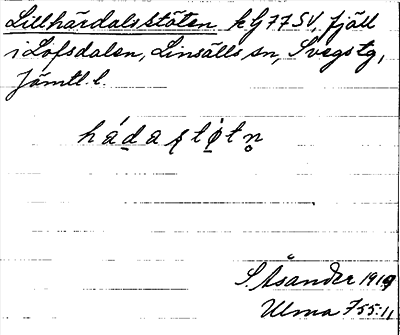 Lillhärdalsstöten kG77SV, fjäll
i Lofsdalen, Linsälls sn, Svegs tg,
Jämtl. l.
hádastøtn̥
S. Åsander 1919
Ulma 755:11